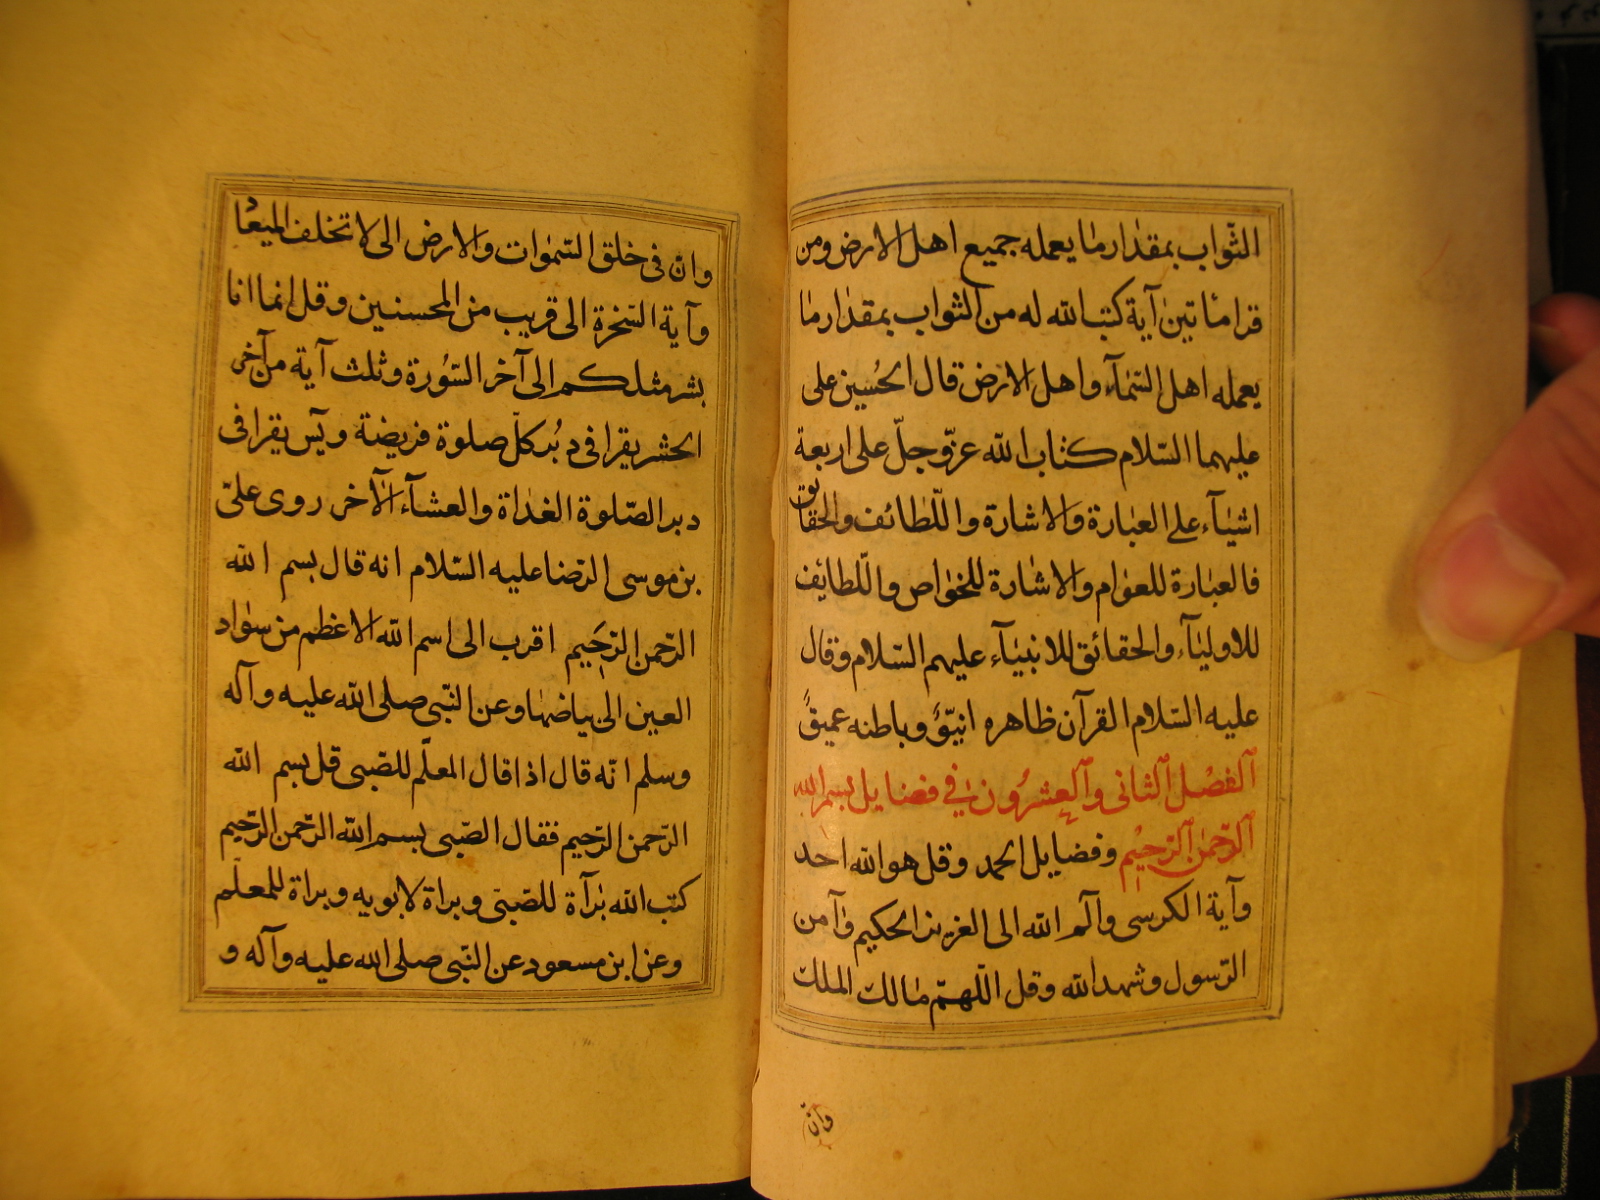 الثّواب بمقدار ما يعمله جميع اهل الارض ومن
قرا مائتين آية كتب الله له من الثواب بمقدار ما
يعمله اهل السّمآء واهل الارض قال الحُسين على
عليهما السّلام كتاب الله عزّوجلّ على اربعة
اشيآء على العبارة والاشارة واللّطائف والحقائق
فالعبارة للعوام والاشارة للخواص واللّطايف
للاوليآء والحقائق للانبيآء عليهم السّلام وقال
عليه السّلام القرآن ظاهره انيّقٌ وباطنه عميقٌ
الفصل الثانى والعشرُون فى فضايل بسم الله
الرّحمن الرّحيم وفضايل الحمد وقل هو الله احد
وآية الكرسى والم الله الى العزيز الحكيم وآمن
الرّسول وشهد الله وقل اللّهمّ مالك الملك
وانّ
وانّ فى خلق السّموات والارض الى لا تخلف الميعاد
وآية السّخرة الى قريب من المحسنين وقل انما انا
بشر مثلكم الى آخر السّورة وثلث آية من آخر
الحشر يقرا فى دبُر كلّ صلوة فريضة ويٓس يقرا فى
دبر الصّلوة الغداة والعشآء الآخر روى علىّ
بن موسى الرّضا عليه السّلام انه قال بسم الله
الرّحمن الرّحيم اقرب الى اسم الله الاعظم من سواد
العين الى بياضها وعن النّبى صلى الله عليه وآله
وسلم انّه قال اذا قال المعلّم للصّبى قل بسم الله
الرّحمن الرّحيم فقال الصّبى بسم الله الرّحمن الرّحيم
كتب الله برآة للصّبىّ وبراة لابويه وبراة للمعلّم
وعن ابن مسعود عن النّبى صلى الله عليه وآله و